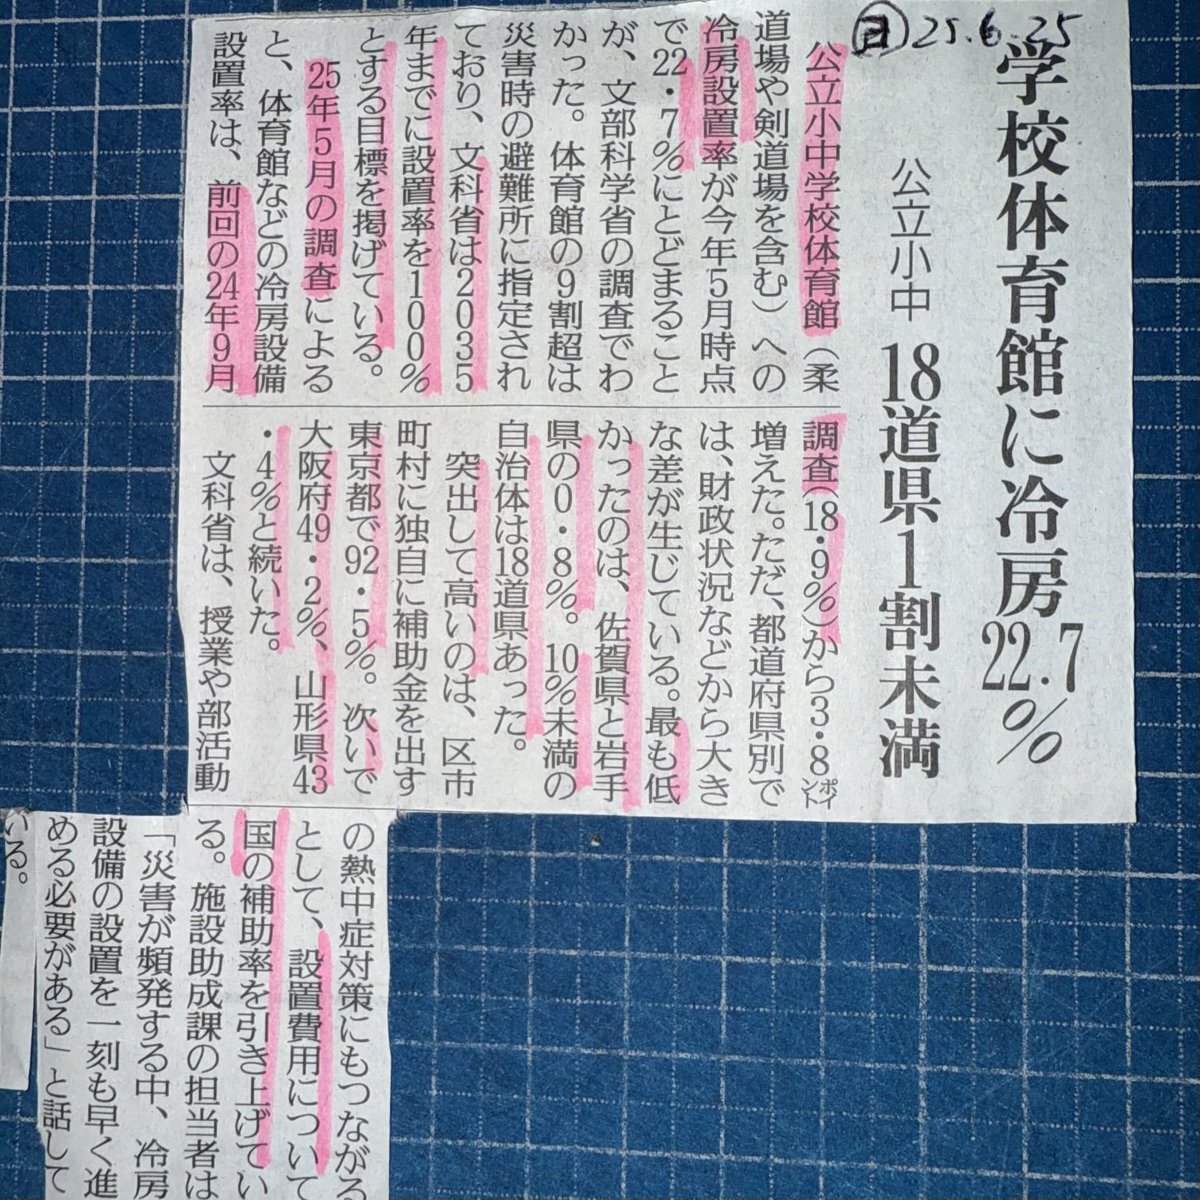 日 25.6.25
学校体育館に冷房22.7%
公立小中 18道県1割未満
公立小中学校体育館(柔
道場や剣道場を含む)への
冷房設置率が今年5月時点
で22・7%にとどまること
が、文部科学省の調査でわ
かった。体育館の9割超は
災害時の避難所に指定され
ており、文科省は2035
年までに設置率を100%
とする目標を掲げている。
25年5月の調査による
と、体育館などの冷房設備
設置率は、前回の24年9月
調査(18・9%)から3・8ポイント
増えた。ただ、都道府県別で
は、財政状況などから大き
な差が生じている。最も低
かったのは、佐賀県と岩手
県の0・8%。10%未満の
自治体は18道県あった。
突出して高いのは、区市
町村に独自に補助金を出す
東京都で92・5%。次いで
大阪府49・2%、山形県43
・4%と続いた。
文科省は、授業や部活動
の熱中症対策にもつながる
として、設置費用について
国の補助率を引き上げてい
る。施設助成課の担当者は
「災害が頻発する中、冷房
設備の設置を一刻も早く進
める必要がある」と話して
いる。